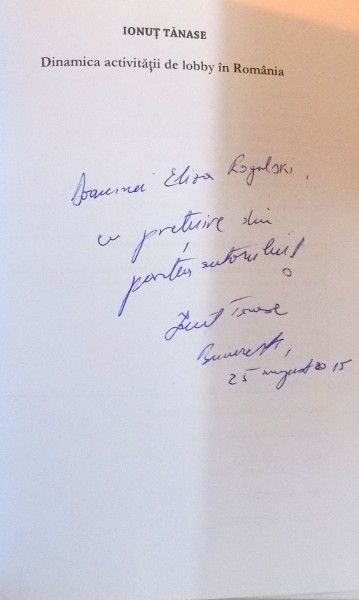 IONUȚ TĂNASE
Dinamica activității de lobby în România
Doamnei Eliza Rogalski,
cu prețuire din
partea autorului!
Ionuț Tănase
București,
25 august 2015